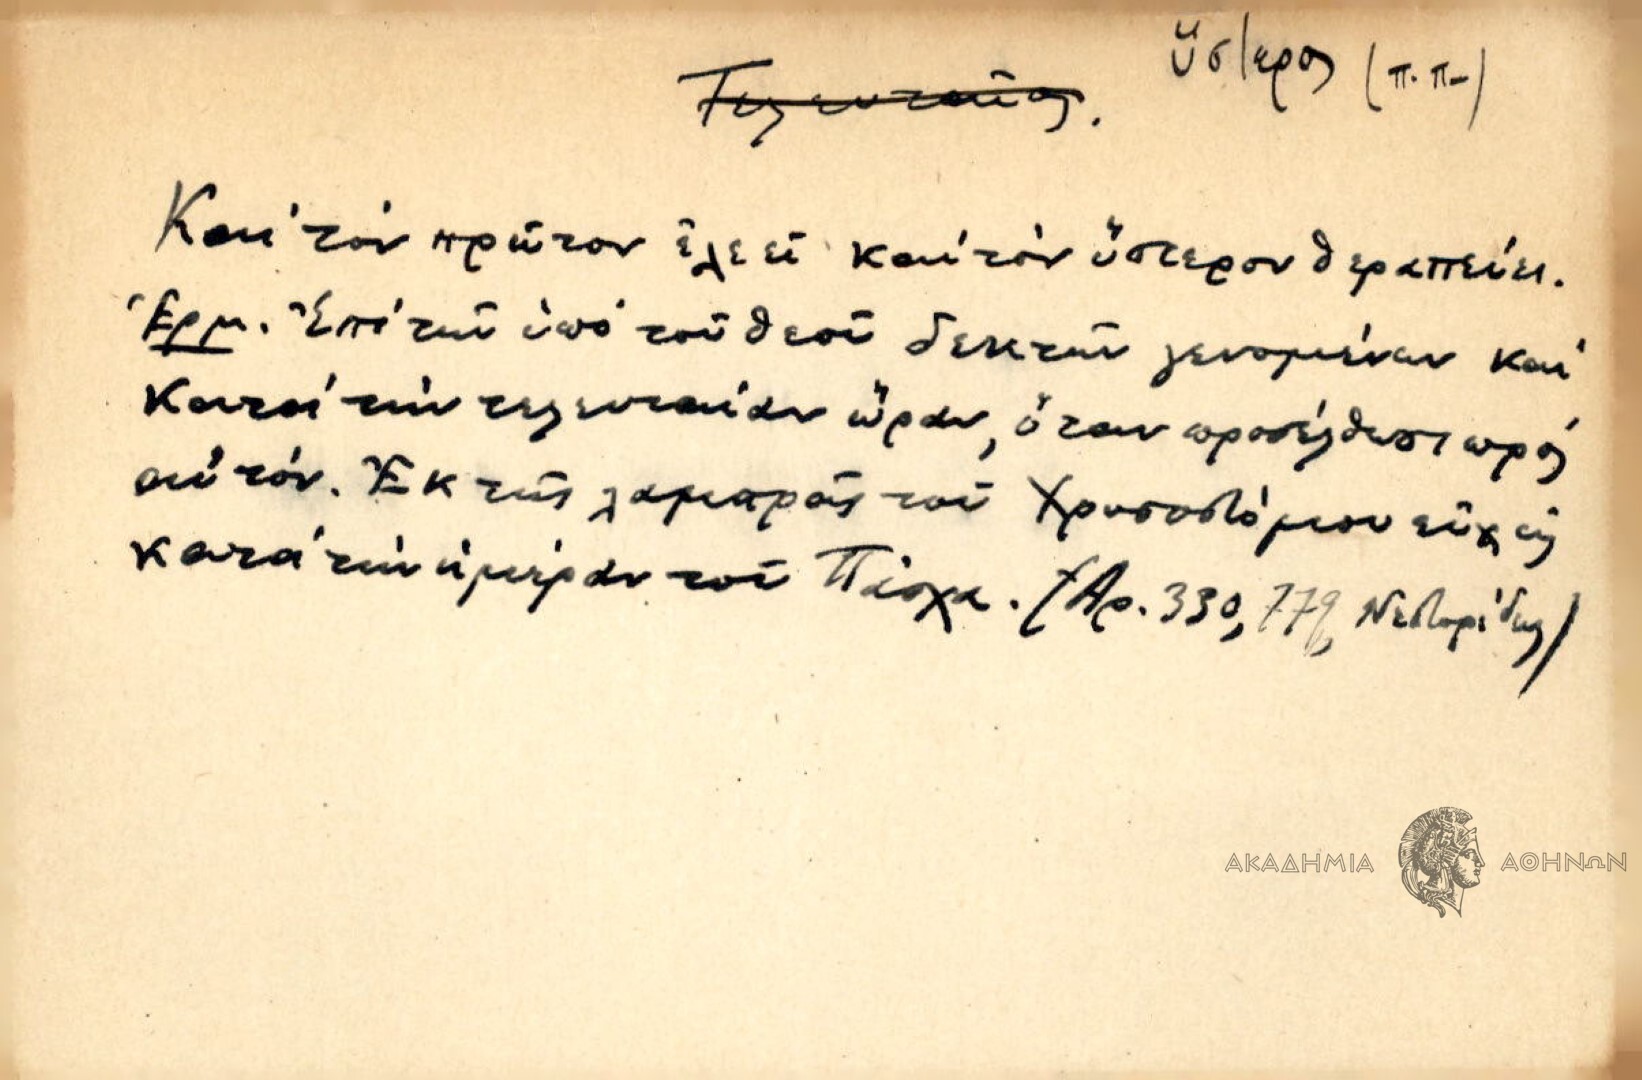 ὕστερος (π.π.)
Τελευταῖος.
Καὶ τὸν πρῶτον ἐλεεῖ καὶ τὸν ὕστερον θεραπεύει.
Ἑρμ. Ἐπὶ τῶν ὑπὸ τοῦ θεοῦ δεκτῶν γενομένων καὶ
κατὰ τὴν τελευταίαν ὥραν, ὅταν προσέλθωσι πρὸς
αὐτόν. Ἐκ τῆς λαμπρᾶς τοῦ Χρυσοστόμου εὐχῆς
κατὰ τὴν ἡμέραν τοῦ Πάσχα. (Ἀρ. 330, 779, Νεστορίδης)
ΑΚΑΔΗΜΙΑ ΑΘΗΝΩΝ